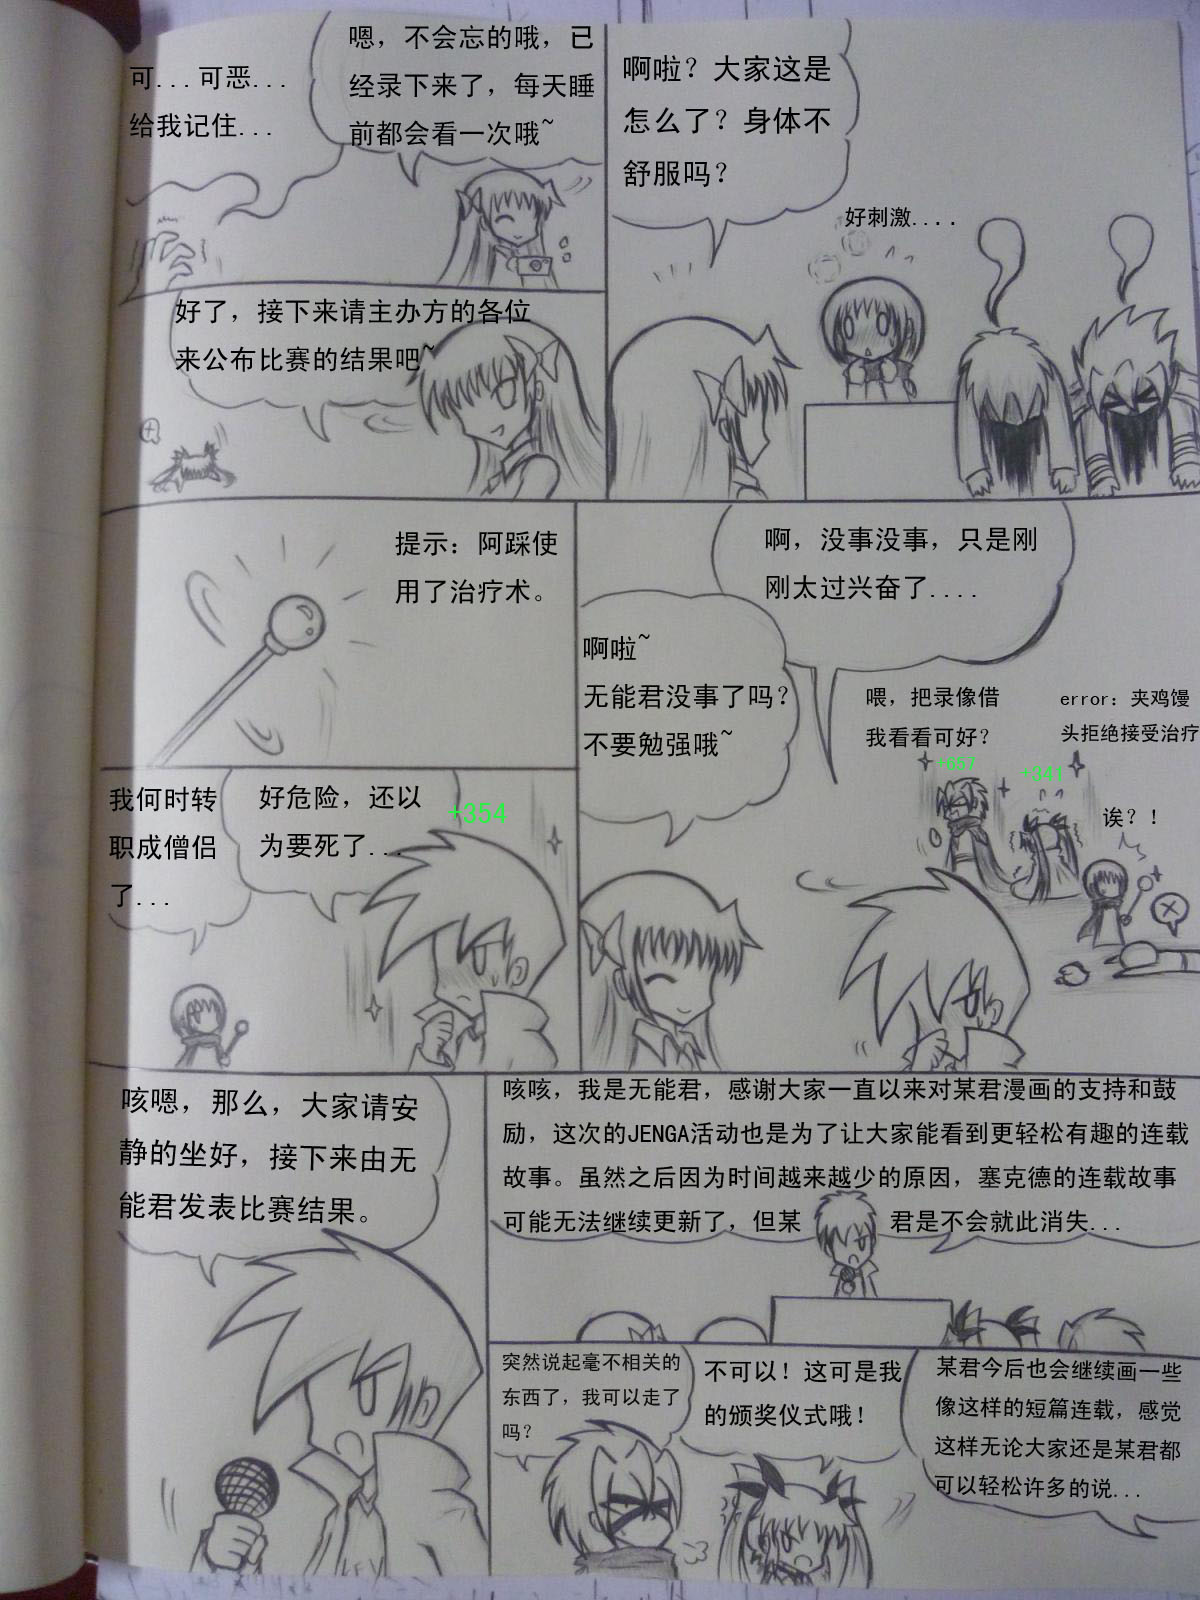 可...可恶...
给我记住...
嗯，不会忘的哦，已
经录下来了，每天睡
前都会看一次哦~
啊啦？大家这是
怎么了？身体不
舒服吗？
好刺激....
好了，接下来请主办方的各位
来公布比赛的结果吧~
提示：阿踩使
用了治疗术。
啊，没事没事，只是刚
刚太过兴奋了....
啊啦~
无能君没事了吗？
不要勉强哦~
喂，把录像借
我看看可好？
error：夹鸡馒
头拒绝接受治疗
+341
诶？！
我何时转
职成僧侣
了...
好危险，还以
为要死了...
+354
咳嗯，那么，大家请安
静的坐好，接下来由无
能君发表比赛结果。
咳咳，我是无能君，感谢大家一直以来对某君漫画的支持和鼓
励，这次的JENGA活动也是为了让大家能看到更轻松有趣的连载
故事。虽然之后因为时间越来越少的原因，塞克德的连载故事
可能无法继续更新了，但某君是不会就此消失...
突然说起毫不相关的
东西了，我可以走了
吗？
不可以！这可是我
的颁奖仪式哦！
某君今后也会继续画一些
像这样的短篇连载，感觉
这样无论大家还是某君都
可以轻松许多的说...